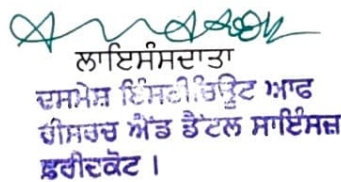 ਲਾਇਸੰਸਦਾਤਾ
ਦਸਮੇਸ਼ ਇੰਸਟੀਚਿਊਟ ਆਫ
ਰੀਸਰਚ ਐਂਡ ਡੈਂਟਲ ਸਾਇੰਸਜ਼
ਫਰੀਦਕੋਟ ।